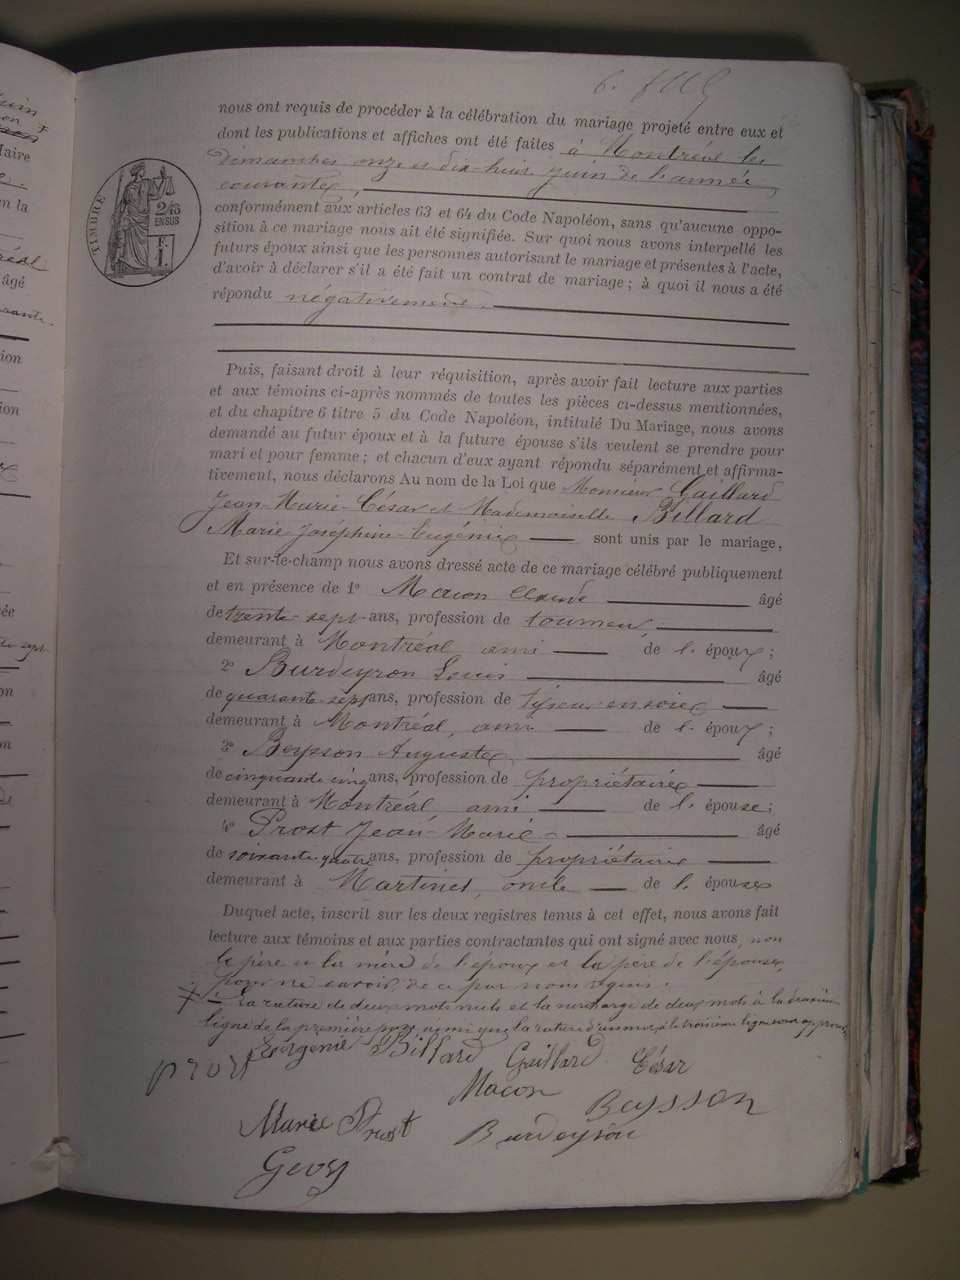 nous ont requis de procéder à la célébration du mariage projeté entre eux et
dont les publications et affiches ont été faites à Montréal les
dimanches onze et dix-huit Juin de l'année
courante,
conformément aux articles 63 et 64 du Code Napoléon, sans qu'aucune oppo-
sition à ce mariage nous ait été signifiée. Sur quoi nous avons interpellé les
futurs époux ainsi que les personnes autorisant le mariage et présentes à l'acte,
d'avoir à déclarer s'il a été fait un contrat de mariage ; à quoi il nous a été
répondu négativement.
TIMBRE
2/10
EN SUS
F.
1.
Puis, faisant droit à leur réquisition, après avoir fait lecture aux parties
et aux témoins ci-après nommés de toutes les pièces ci-dessus mentionnées,
et du chapitre 6 titre 5 du Code Napoléon, intitulé Du Mariage, nous avons
demandé au futur époux et à la future épouse s'ils veulent se prendre pour
mari et pour femme ; et chacun d'eux ayant répondu séparément et affirma-
tivement, nous déclarons Au nom de la Loi que Monsieur Gaillard
Jean-Marie-César et Mademoiselle Billard
Marie Joséphine-Eugénie sont unis par le mariage,
Et sur-le-champ nous avons dressé acte de ce mariage célébré publiquement
et en présence de 1º Macon Claude âgé
de trente-sept ans, profession de tourneur,
demeurant à Montréal, ami de l'époux ;
2º Burdeyron Louis âgé
de quarante-sept ans, profession de tisseur en soie
demeurant à Montréal, ami de l'époux ;
3º Beysson Auguste âgé
de cinquante cinq ans, profession de propriétaire
demeurant à Montréal, ami de l'épouse ;
4º Prost Jean-Marie âgé
de soixante quatre ans, profession de propriétaire
demeurant à Martinet, oncle de l'épouse
Duquel acte, inscrit sur les deux registres tenus à cet effet, nous avons fait
lecture aux témoins et aux parties contractantes qui ont signé avec nous, non
le père et la mère de l'époux et le père de l'épouse,
pour ne savoir, de ce par nous requis.
La rature de deux mots nuls et la surcharge de deux mots à la
ligne de la première page, la rature d'un mot à la troisième ligne
prost Eugenie Billard Gaillard César
Macon Beysson
Marie Prost Burdeyron